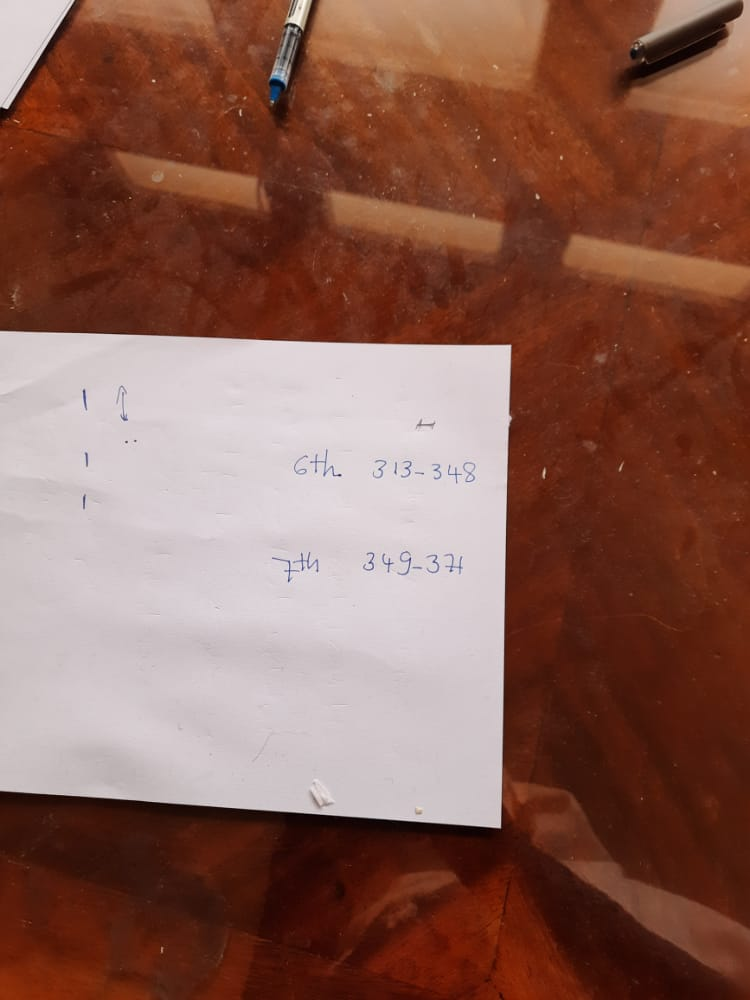 6th. 313-348
7th 349-371